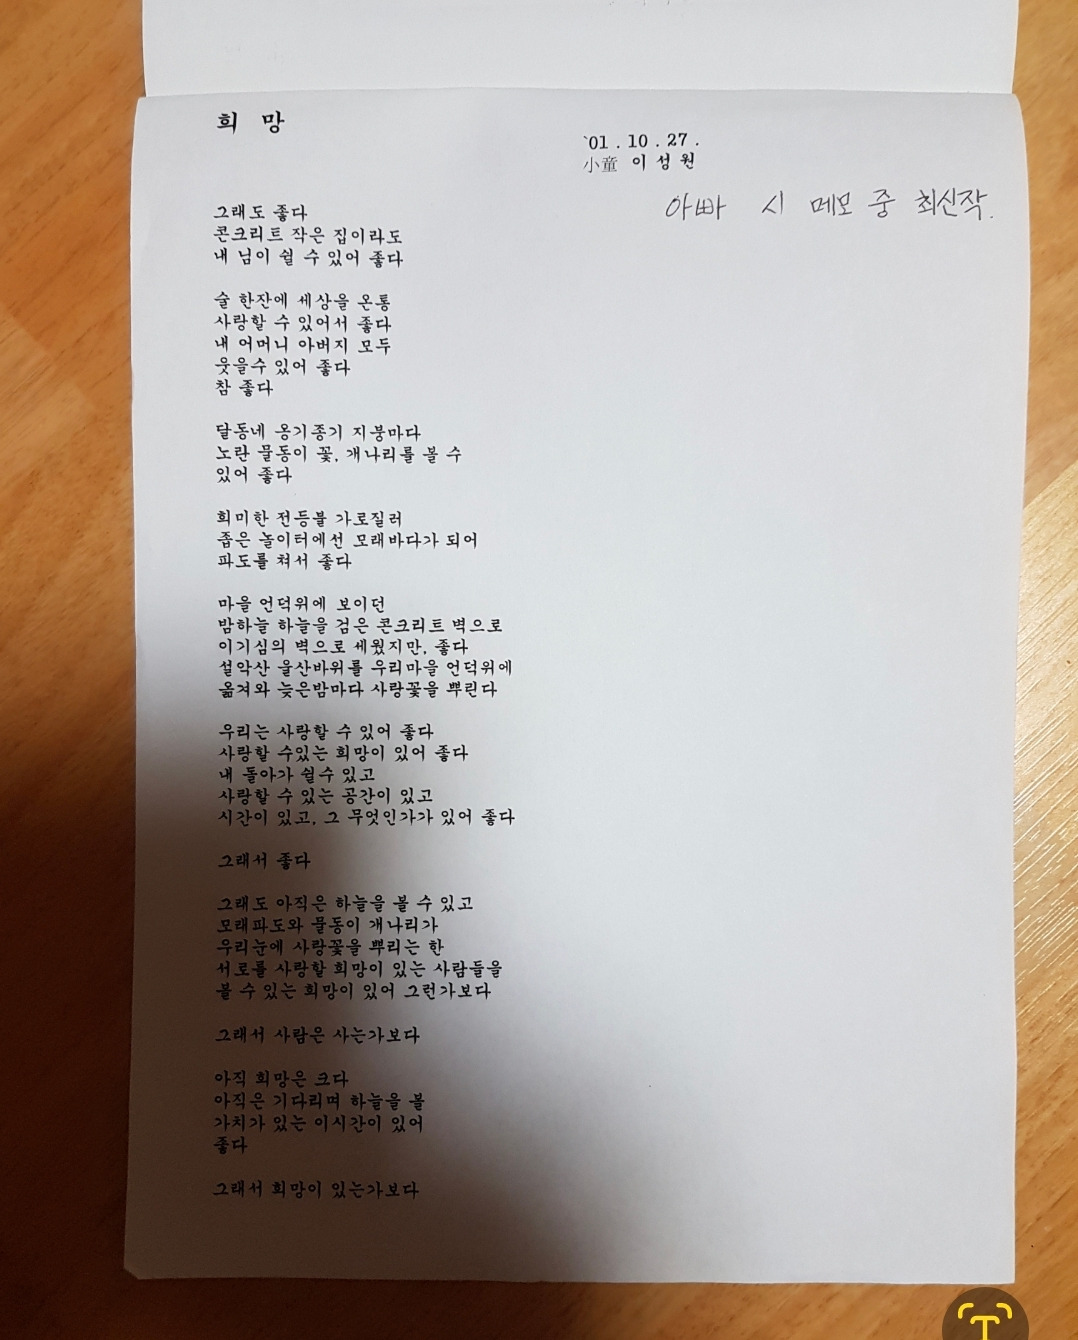 희 망
`01 . 10 . 27 .
小童 이 성 원
아빠 시 메모 중 최신작.
그래도 좋다
콘크리트 작은 집이라도
내 님이 쉴 수 있어 좋다
술 한잔에 세상을 온통
사랑할 수 있어서 좋다
내 어머니 아버지 모두
웃을수 있어 좋다
참 좋다
달동네 옹기종기 지붕마다
노란 물동이 꽃, 개나리를 볼 수
있어 좋다
희미한 전등불 가로질러
좁은 놀이터에선 모래바다가 되어
파도를 쳐서 좋다
마을 언덕위에 보이던
밤하늘 하늘을 검은 콘크리트 벽으로
이기심의 벽으로 세웠지만, 좋다
설악산 울산바위를 우리마을 언덕위에
옮겨와 늦은밤마다 사랑꽃을 뿌린다
우리는 사랑할 수 있어 좋다
사랑할 수있는 희망이 있어 좋다
내 돌아가 쉴수 있고
사랑할 수 있는 공간이 있고
시간이 있고, 그 무엇인가가 있어 좋다
그래서 좋다
그래도 아직은 하늘을 볼 수 있고
모래파도와 물동이 개나리가
우리눈에 사랑꽃을 뿌리는 한
서로를 사랑할 희망이 있는 사람들을
볼 수 있는 희망이 있어 그런가보다
그래서 사람은 사는가보다
아직 희망은 크다
아직은 기다리며 하늘을 볼
가치가 있는 이시간이 있어
좋다
그래서 희망이 있는가보다